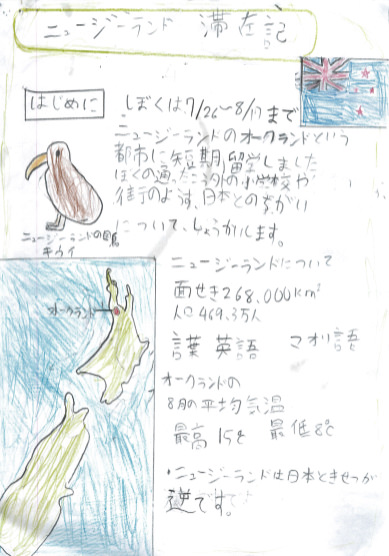 ニュージーランド 滞在記
はじめに
ぼくは7/26~8/17まで
ニュージーランドのオークランドという
都市に短期留学しました
ぼくの通った
の小学校や
街のようす、日本とのちがい
について、しょうかいします。
ニュージーランドの国鳥
キウイ
ニュージーランドについて
面せき268.000km²
人口469.3万人
オークランド
英語 マオリ語
オークランドの
8月の平均気温
最高 15℃ 最低 8℃
・ニュージーランドは日本ときせつが
逆です。